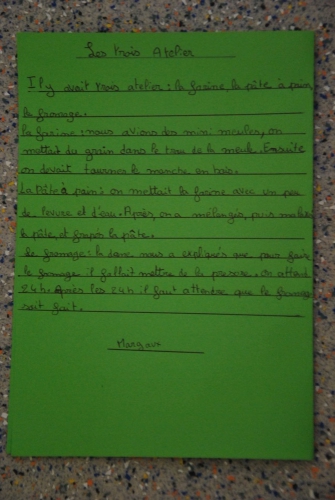 Les trois Atelier
Il y avait trois atelier : la farine, la pâte à pain
le fromage.
La farine : nous avions des mini meules, on
mettait du grain dans le trou de la meule. Ensuite
on devait tourner le manche en bois.
La Pâte à pain : on mettait la farine avec un peu
de levure et d'eau. Après, on a mélangés, puis
la pâte, et la pâte.
Le fromage : la dame nous a expliqués que pour faire
le fromage il fallait mettre de la presure. on attend
24h. Après les 24h il faut attendre que le fromage
soit fait.
Margaux